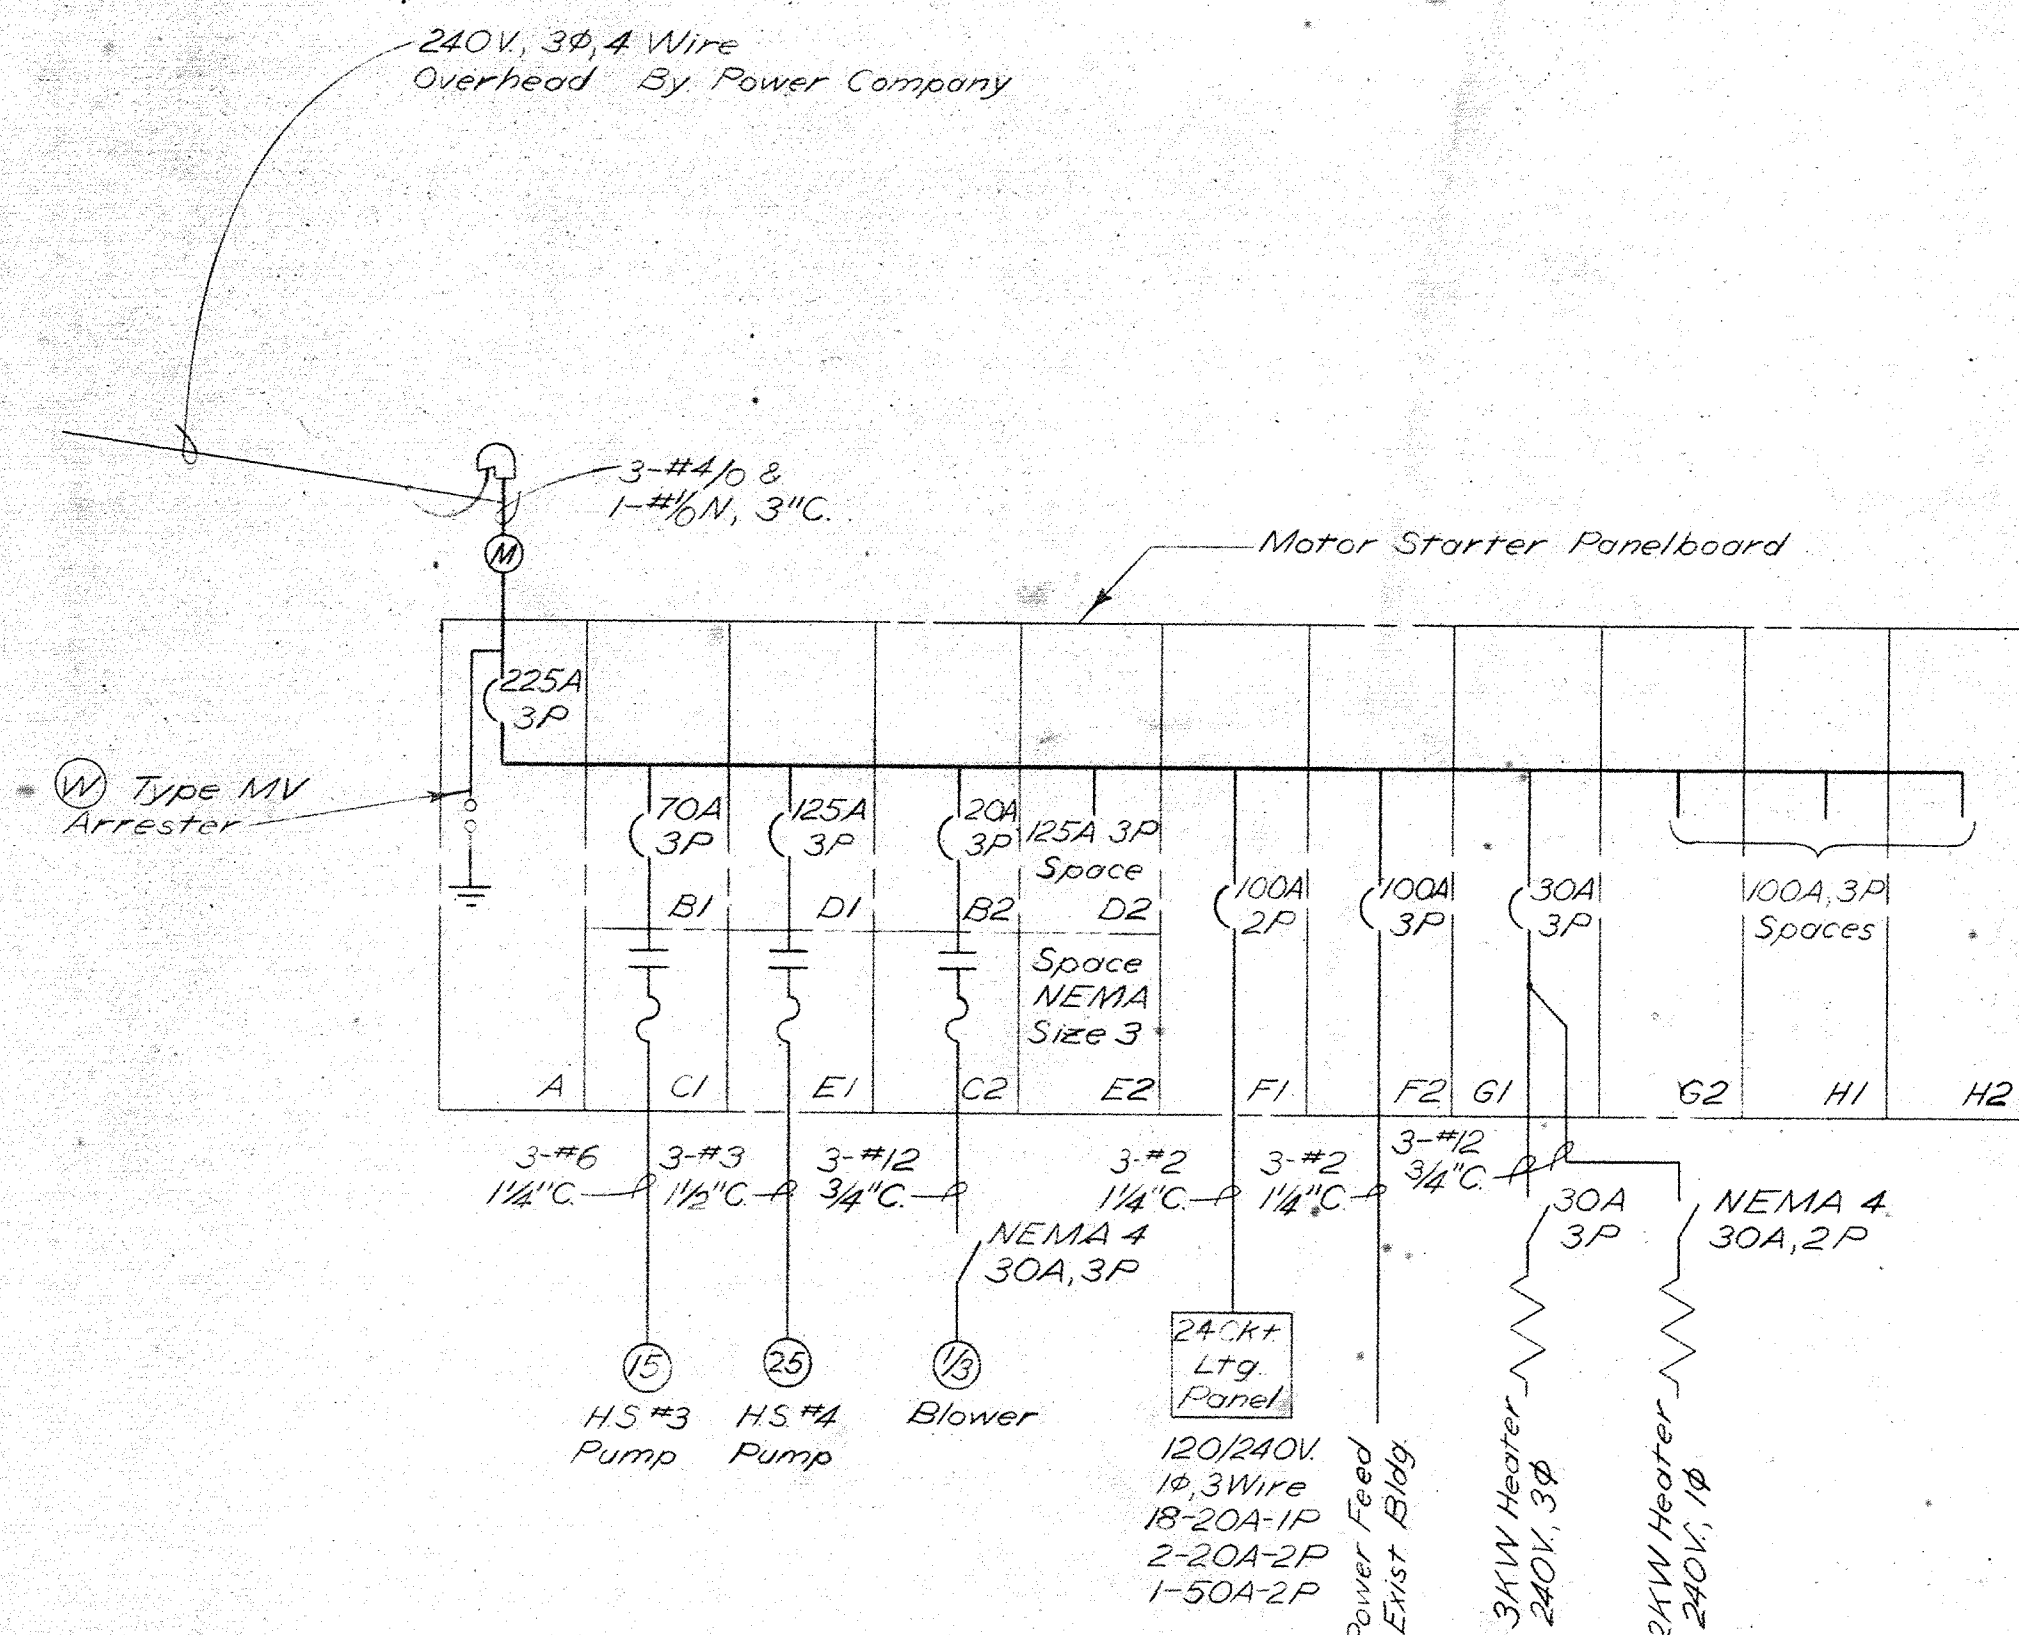 240V., 3Φ, 4 Wire
Overhead By Power Company
3-#4/0 &
1-#1/0 N, 3"C.
M
Motor Starter Panelboard
225A
3P
W Type MV
Arrester
70A
3P
125A
3P
20A
3P
125A 3P
Space
100A
2P
100A
3P
30A
3P
100A, 3P
Spaces
B1
D1
B2
D2
Space
NEMA
Size 3
A
C1
E1
C2
E2
F1
F2
G1
G2
H1
H2
3-#6
1¼"C.
3-#3
1½"C.
3-#12
¾"C.
3-#2
1¼"C.
3-#2
1¼"C.
3-#12
¾"C.
NEMA 4
30A, 3P
30A
3P
NEMA 4
30A, 2P
15
H.S. #3
Pump
25
H.S. #4
Pump
1/3
Blower
24 Ckt.
Ltg.
Panel
120/240V.
1Φ, 3 Wire
18-20A-1P
2-20A-2P
1-50A-2P
Power Feed
Exist Bldg.
3KW Heater
240V., 3Φ
2KW Heater
240V., 1Φ